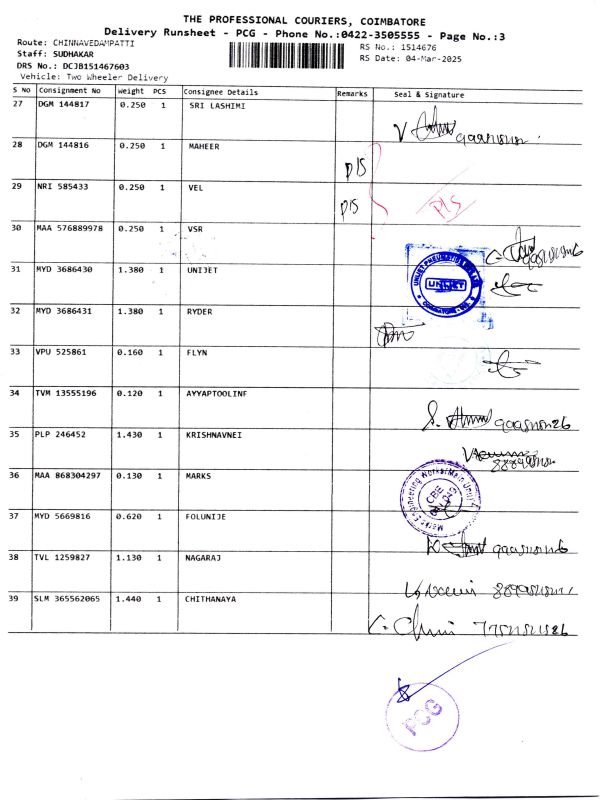 THE PROFESSIONAL COURIERS, COIMBATORE
Delivery Runsheet - PCG - Phone No.:0422-3505555 - Page No.:3
Route: CHINNAVEDAMPATTI
RS No.: 1514676
Staff: SUDHAKAR
RS Date: 04-Mar-2025
DRS No.: DCJB151467603
Vehicle: Two Wheeler Delivery
S No Consignment No Weight PCS Consignee Details Remarks Seal & Signature
27 DGM 144817 0.250 1 SRI LASHIMI
28 DGM 144816 0.250 1 MAHEER P/S
29 NRI 585433 0.250 1 VEL P/S P/S
30 MAA 576889978 0.250 1 VSR
31 MYD 3686430 1.380 1 UNIJET
UNIJET
32 MYD 3686431 1.380 1 RYDER
33 VPU 525861 0.160 1 FLYN
34 TVM 13555196 0.120 1 AYYAPTOOLINF
35 PLP 246452 1.430 1 KRISHNAVNEI
36 MAA 868304297 0.130 1 MARKS
CBE
37 MYD 5669816 0.620 1 FOLUNIJE
38 TVL 1259827 1.130 1 NAGARAJ
39 SLM 365562065 1.440 1 CHITHANAYA
PCG